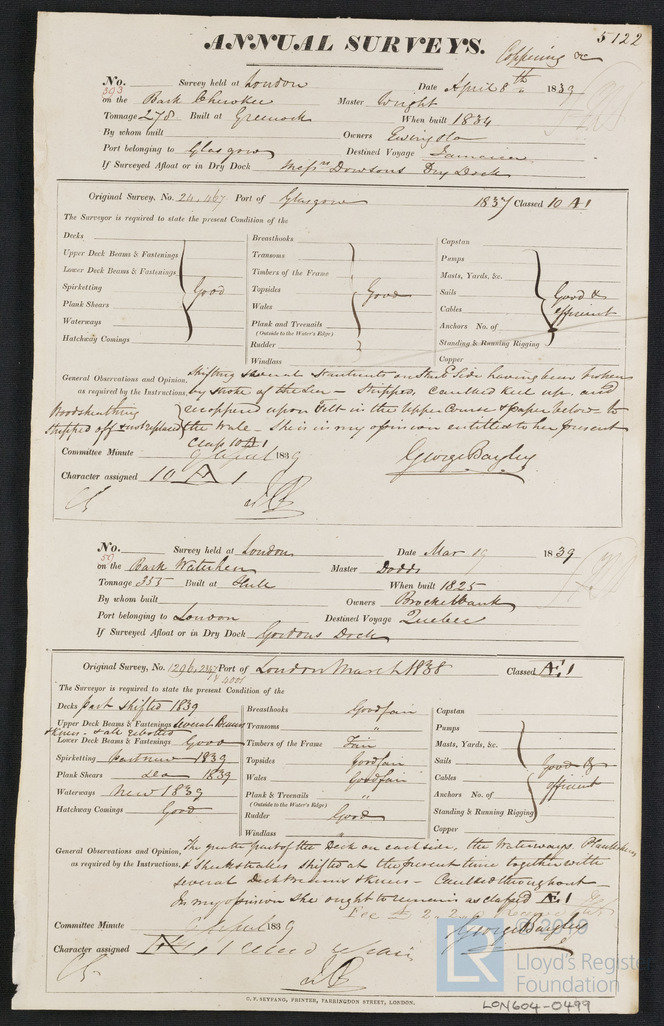 5122
ANNUAL SURVEYS.
Coppering &c
No. 393 Survey held at London Date April 8th 1839
on the Bark Cherokee Master Wright
Tonnage 278 Built at Greenock When built 1834
By whom built Owners Ewing &
Port belonging to Glasgow Destined Voyage Jamaica
If Surveyed Afloat or in Dry Dock Messrs Dowsons Dry Dock
Original Survey, No. 24,467 Port of Glasgow 1837 Classed 10 A 1
The Surveyor is required to state the present Condition of the
Decks
Upper Deck Beams & Fastenings
Lower Deck Beams & Fastenings
Spirketting
Plank Shears
Waterways
Hatchway Comings
Good
Breasthooks
Transoms
Timbers of the Frame
Topsides
Wales
Plank and Treenails
(Outside to the Water's Edge)
Rudder
Windlass
Good
Capstan
Pumps
Masts, Yards, &c.
Sails
Cables
Anchors No. of
Standing & Running Rigging
Copper
Good & efficient
General Observations and Opinion, Shifting several Stantients on Starb Side having been broken
as required by the Instructions, by stroke of the Sea - Stripped, Caulked Keel up, and
Woodsheathing recoppered upon Felt in the Upper Course & paper below - to
stripped off & not replaced the Wale - She is in my opinion entitled to her present
Class 10 A 1
Committee Minute 9 April 1839 George Bayley
Character assigned 10 A 1
No. 50 Survey held at London Date Mar 19 1839
on the Bark Master Dodds
Tonnage 355 Built at Hull When built 1825
By whom built Owners Brocklebank
Port belonging to London Destined Voyage Quebec
If Surveyed Afloat or in Dry Dock Gordons Dock
Original Survey, No. Port of London March 1838 Classed Æ 1
The Surveyor is required to state the present Condition of the
Decks part shifted 1839
Upper Deck Beams & Fastenings several Beams
& Knees - & all rebolted
Lower Deck Beams & Fastenings Good
Spirketting Part new 1839
Plank Shears Do 1839
Waterways New 1839
Hatchway Comings Good
Breasthooks Good fair
Transoms "
Timbers of the Frame Fair
Topsides Good fair
Wales Good fair
Plank & Treenails "
(Outside to the Water's Edge)
Rudder Good
Windlass "
Capstan
Pumps
Masts, Yards, &c.
Sails
Cables
Anchors No. of
Standing & Running Rigging
Copper
Good & efficient
General Observations and Opinion, The greater part of the Deck on each side, the Waterways Plansheers
as required by the Instructions, & Sheerstrakes shifted at the present time together with
several Deck Beams & Knees - Caulked throughout -
In my opinion She ought to remain as classed Æ 1
Fee £ 2.2.0
Committee Minute April 1839 George Bayley
Character assigned Æ 1
C. F. SEYFANG, PRINTER, FARRINGDON STREET, LONDON.
© 2019
LR
Lloyd's Register
Foundation
LON604-0499